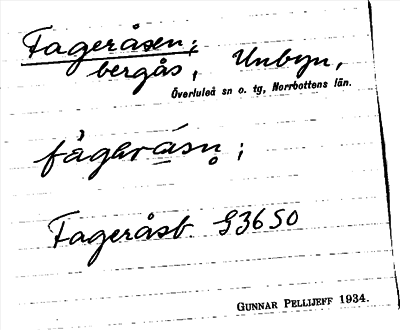 Fageråsen;
bergås, Unbyn,
Överluleå sn o. tg, Norrbottens län.
fågäråsn̥ ;
Fageråsb. S36SO
GUNNAR PELLIJEFF 1934.